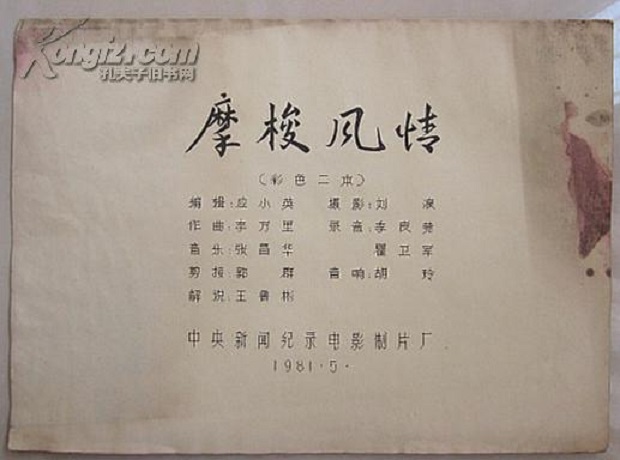 Kongfz.com
孔夫子旧书网
摩梭风情
(彩色二本)
编辑:应小英 摄影:刘浪
作曲:李万里 录音:李良荣
音乐:张昌华 瞿卫军
剪接:郭群 音响:胡玲
解说:王晋彬
中央新闻纪录电影制片厂
1981·5·